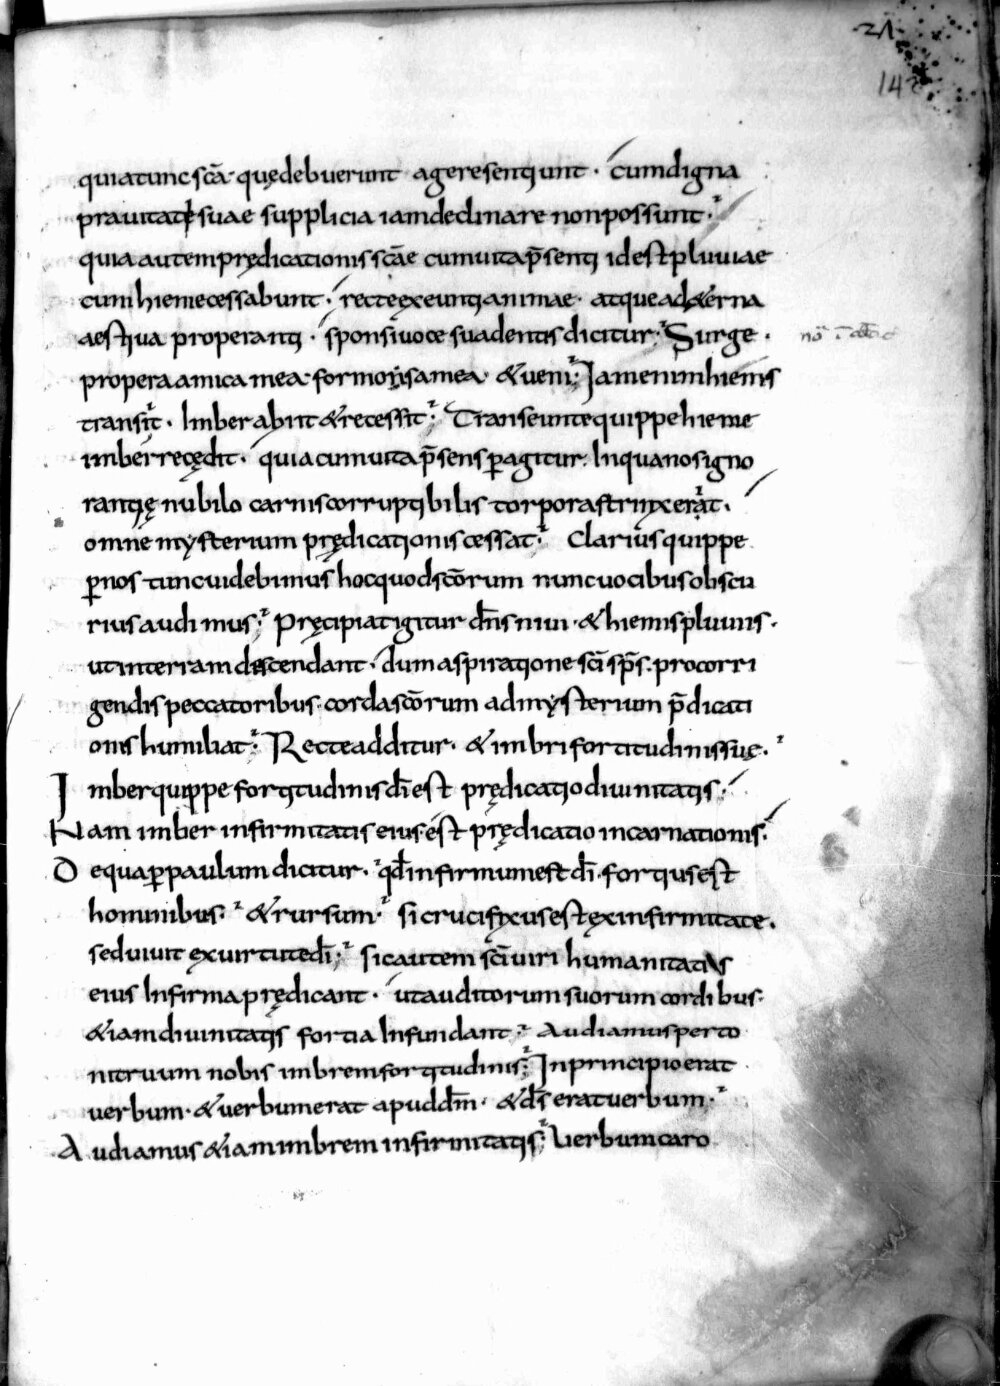 21
142
quia tunc scā quę debuerunt agere sentiunt · cum digna
prauitatis suae supplicia iam declinare non possunt ·
quia autem prędicationis scāe cum uita p̄senti idest pluuiae
cum hieme cessabunt · recte exeunti animae · atque ad &erna
aestiua properanti · sponsi uoce suadentis dicitur · Surge ·
propera amica mea · formonsa mea · & ueni · Iam enim hiems
transiit · Imber abiit & recessit · Transeunte quippe hieme
imber recędit · quia cum uita p̄sens ꝑagitur · In qua nos igno
rantię nubilo carnis corruptibilis torpor astrinxerat ·
omne mysterium prędicationis cessat · Clarius quippe
ꝑ nos tunc uidebimus hoc quod scōrum nunc uocibus obscu
rius audimus · Pręcipiat igitur dn̄s niui · & hiemis pluuiis ·
ut in terram descendant · dum aspiratione scī sp̄s · pro corri
gendis peccatoribus · corda scōrum ad mysterium p̄dicati
onis humiliat · Recte additur · & imbri fortitudinis suę ·
Imber quippe fortitudinis dī est prędicatio diuinitatis ·
Nam imber infirmitatis eius est prędicatio incarnationis ·
De qua ꝑ paulum dicitur · qd̄ infirmum est dī · fortius est
hominibus · & rursum · si crucifixus est ex infirmitate ·
sed uiuit ex uirtute dī · sic autem scī uiri humanitatis
eius Infirma prędicant · ut auditorum suorum cordibus ·
& iam diuinitatis fortia Infundant · Audiamus per to
nitruum nobis imbrem fortitudinis · In principio erat
uerbum · & uerbum erat apud dm̄ · & ds̄ erat uerbum ·
Audiamus & iam imbrem infirmitatis · Uerbum caro